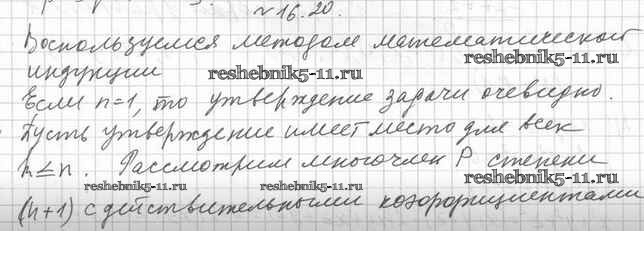 №16.20.
Воспользуемся методом математической
индукции
reshebnik5-11.ru
reshebnik5-11.ru
Если n=1, то утверждение задачи очевидно.
Пусть утверждение имеет место для всех
k≤n. Рассмотрим многочлен P степени
reshebnik5-11.ru
reshebnik5-11.ru
reshebnik5-11.ru
(n+1) с действительными коэффициентами